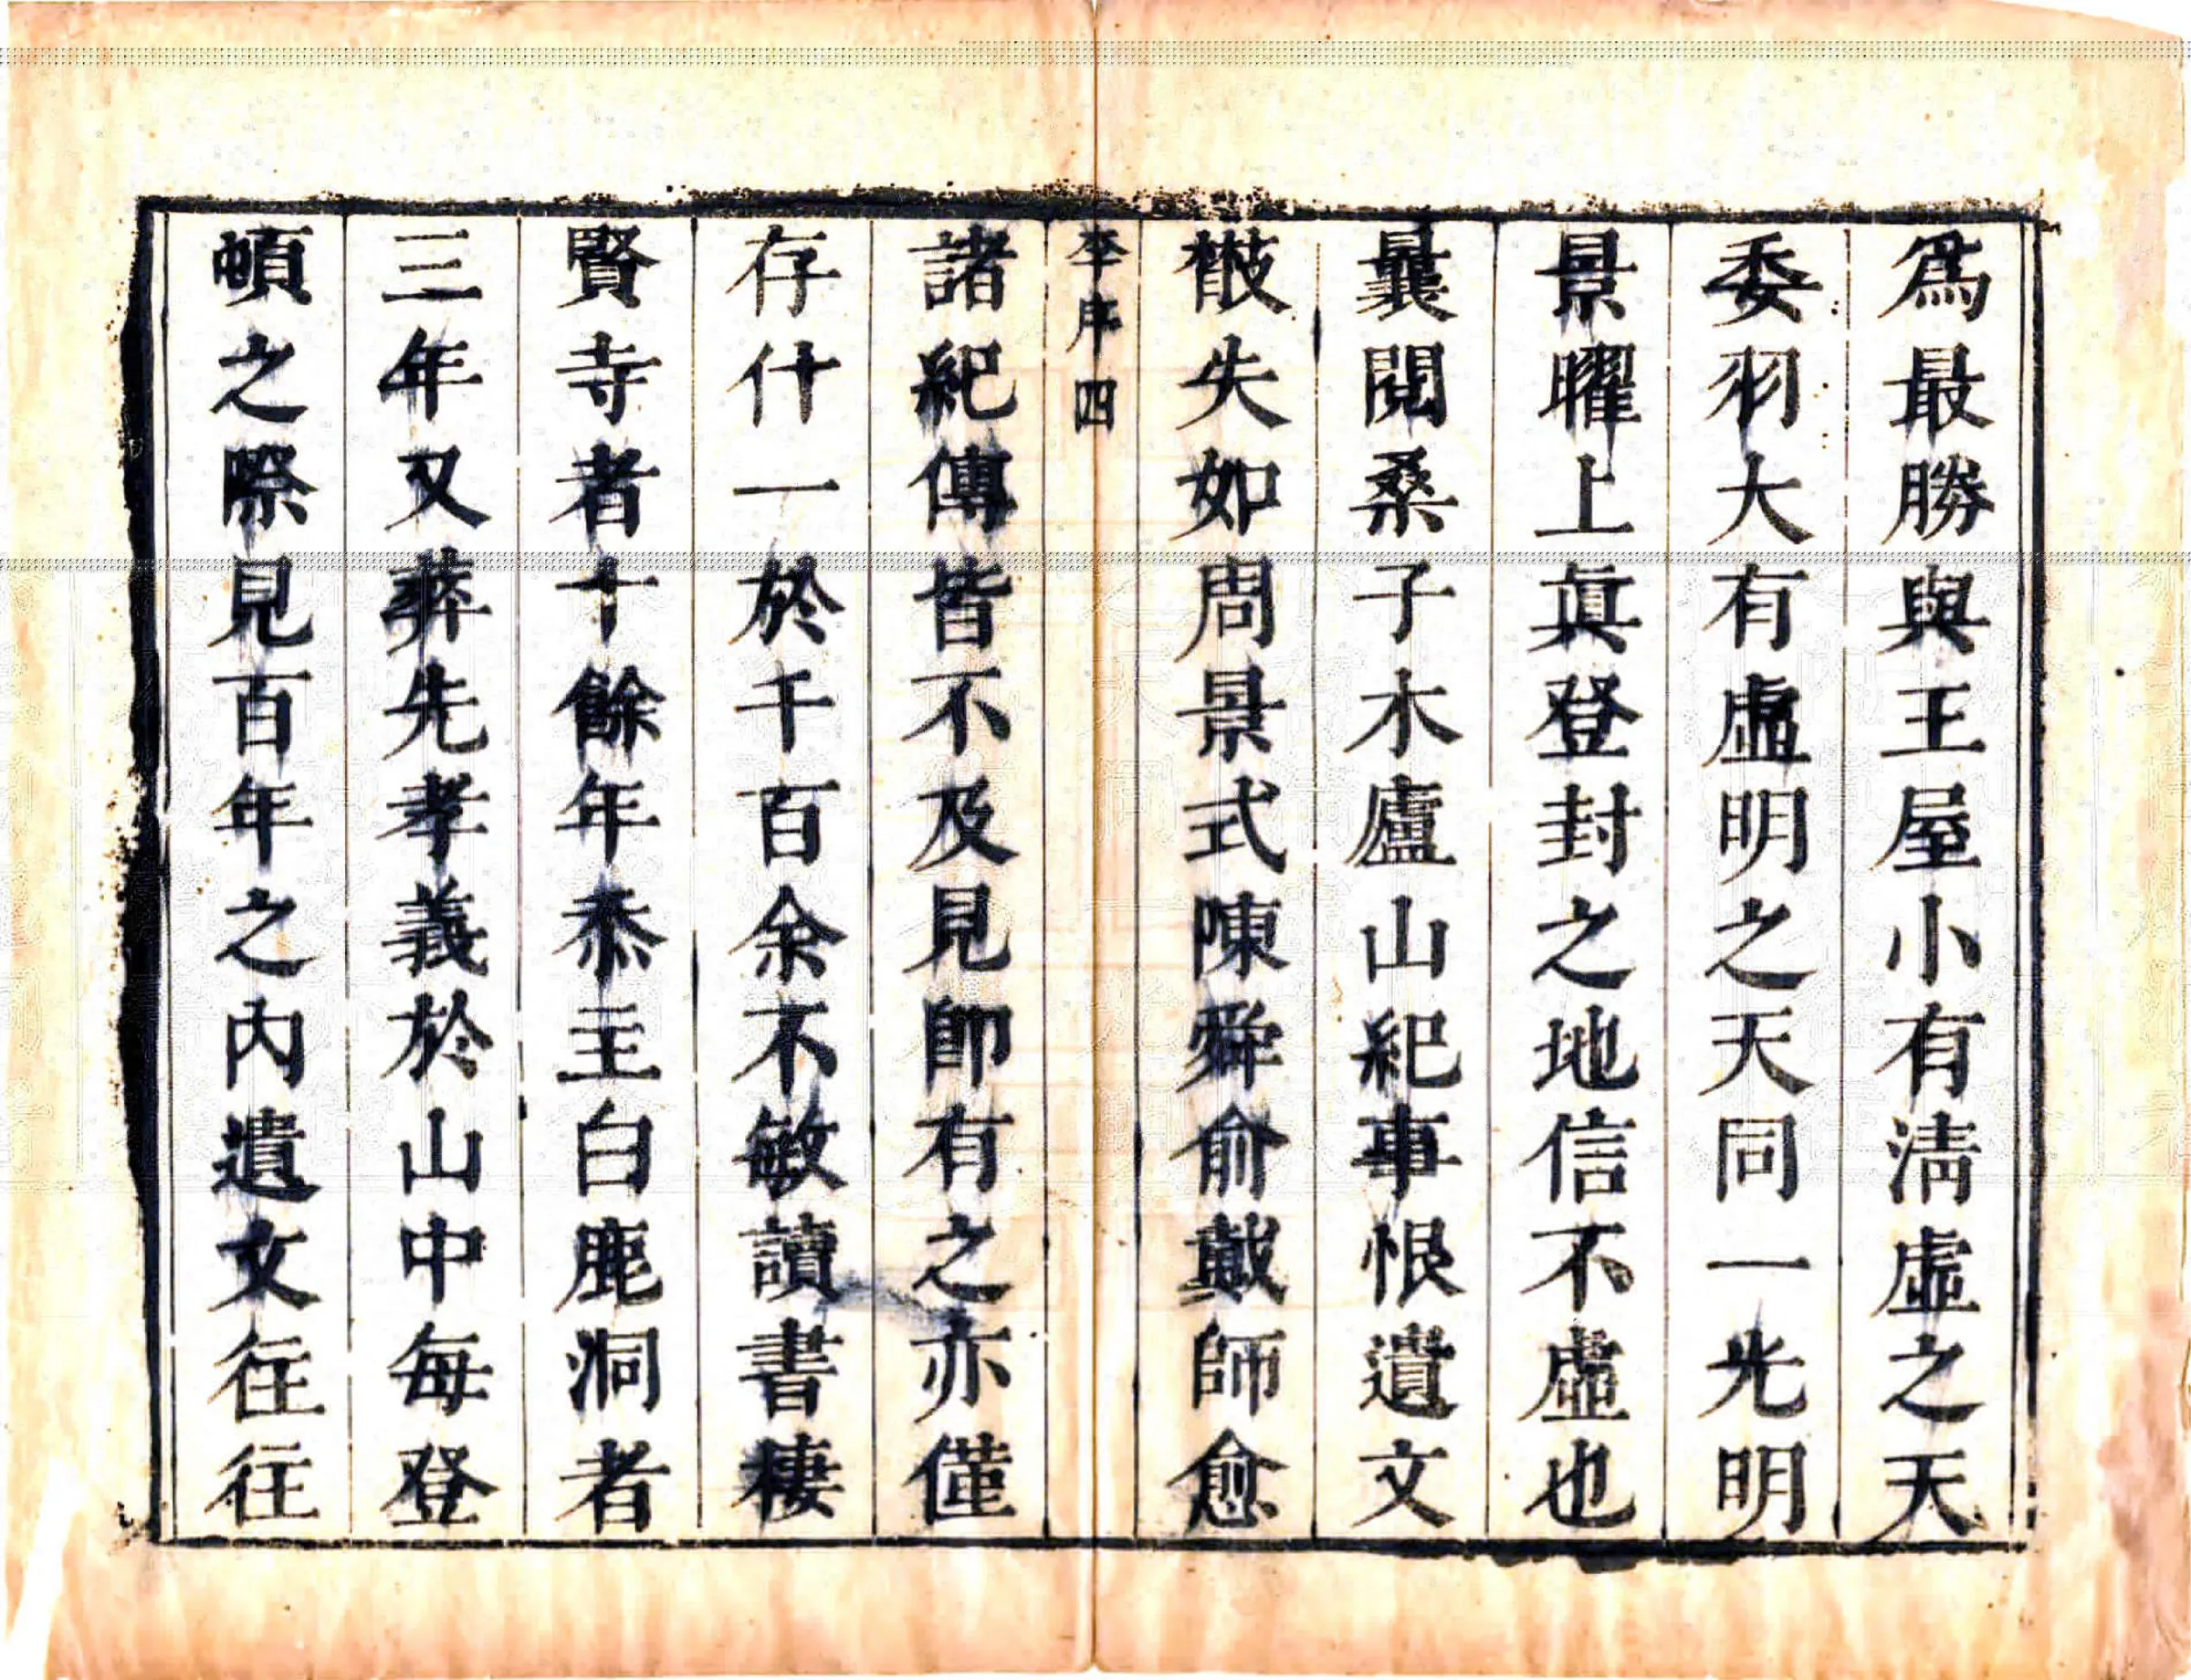 爲最勝與王屋小有淸虛之天
委羽大有虛明之天同一光明
景曜上眞登封之地信不虛也
曩閱桑子木廬山紀事恨遺文
散失如周景式陳舜俞戴師愈
李序 四
諸紀傳皆不及見卽有之亦僅
存什一於千百余不敏讀書棲
賢寺者十餘年忝主白鹿洞者
三年又葬先孝義於山中每登
頓之際見百年之內遺文往往